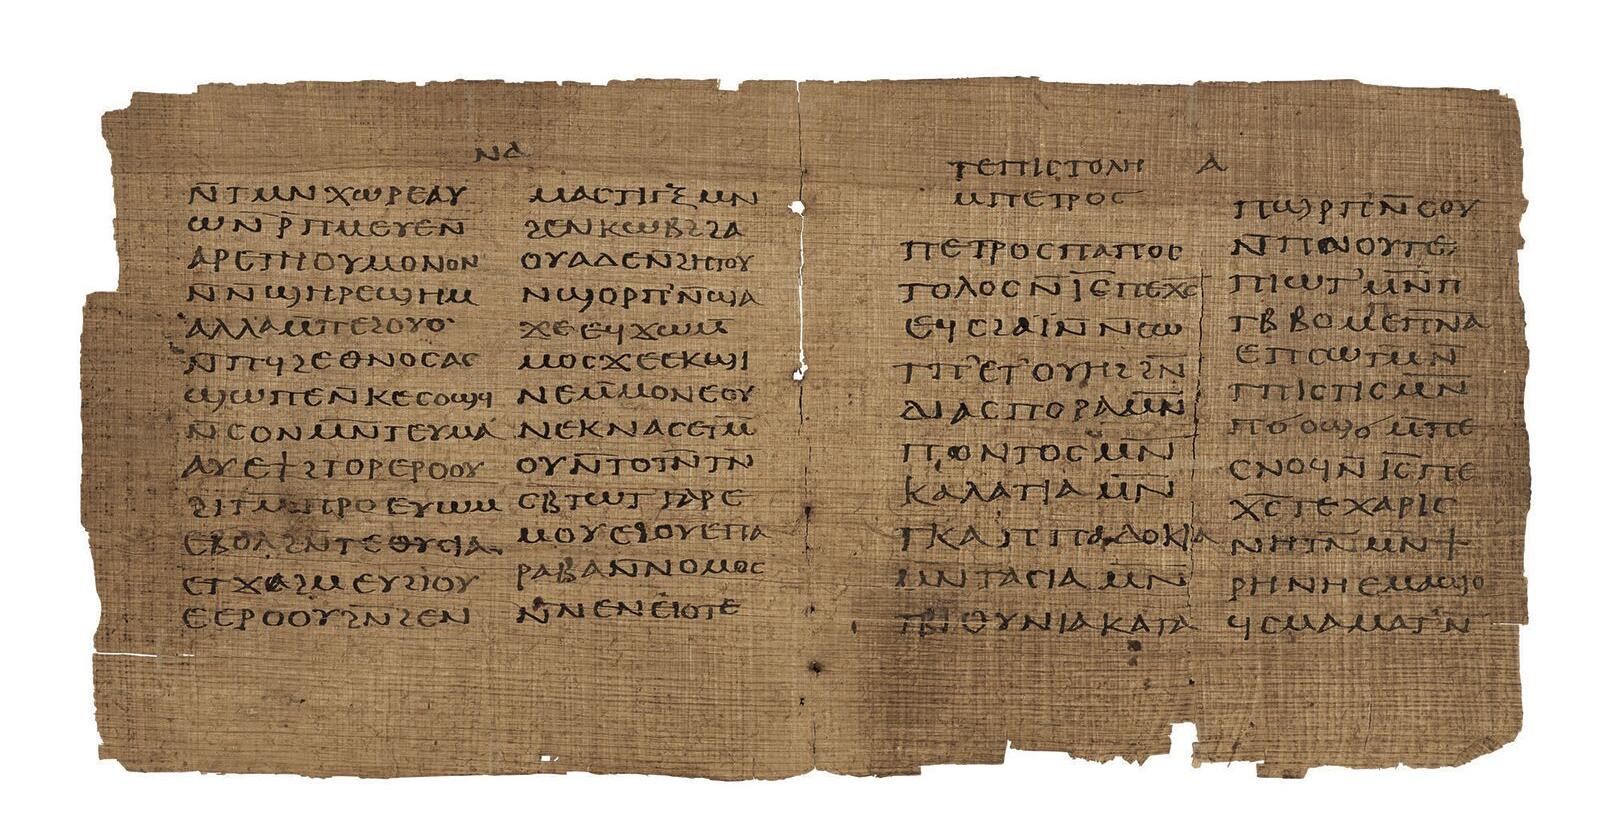 ⲛⲁ
ⲛ̄ⲧⲙⲛⲭⲱⲣⲉⲁⲩ
ⲱⲛⲣ̄ⲡⲙⲉⲩⲉⲛ̄
ⲁⲣⲉⲧⲏⲟⲩⲙⲟⲛⲟⲛ
ⲛ̄ⲛϣⲏⲣⲉϣⲏⲙ
ⲁⲗⲗⲁⲙ̄ⲡⲉϩⲟⲩⲟ
ⲛ̄ⲡϥϩⲉⲑⲛⲟⲥⲁⲥ
ϣⲱⲡⲉⲛ̄ⲕⲉⲥⲟϣϥ
ⲛ̄ⲥⲟⲛⲙⲛ̄ⲧⲉⲩⲙⲁ
ⲁⲩⲉϯϩⲧⲟⲣⲉⲣⲟⲟⲩ
ϩⲓⲧⲙ̄ⲡⲣⲟⲉⲩⲱⲙ
ⲉⲃⲟⲗϩⲛ̄ⲧⲉⲑⲩⲥⲓⲁ
ⲉⲧϫⲁϩⲙⲉⲩϩⲓⲟⲩ
ⲉⲉⲣⲟⲟⲩϩⲛ̄ϩⲉⲛ
ⲙⲁⲥⲧⲓⲅⲝⲙⲛ
ϩⲉⲛⲕⲱⲃϩϩⲁ
ⲟⲩⲁⲇⲉⲛ̄ϩⲏⲧⲟⲩ
ⲛϣⲟⲣⲡ̄ⲛ̄ϣⲁ
ϫⲉⲉϥϫⲱⲙ̄
ⲙⲟⲥϫⲉⲉⲕϣⲓ
ⲛⲉⲙ̄ⲙⲟⲛⲉⲟⲩ
ⲛⲉⲕⲛⲁⲥⲉⲧⲙ̄
ⲟⲩⲛ̄ⲧⲟⲧⲛ̄ⲧⲛ
ⲥⲃ̄ⲧⲱⲧⲅⲁⲣⲉ
ⲙⲟⲩⲉϩⲟⲩⲉⲡⲁ
ⲣⲁⲃⲁⲛ̄ⲛⲟⲙⲟⲥ
ⲛ̄ⲛⲉⲛⲉⲓⲟⲧⲉ
ⲧⲉⲡⲓⲥⲧⲟⲗⲏ ⲁ
ⲙⲡⲉⲧⲣⲟⲥ
ⲡⲉⲧⲣⲟⲥⲡⲁⲡⲟⲥ
ⲧⲟⲗⲟⲥⲛ̄ⲓ̄ⲥ̄ⲡⲉⲭ̄ⲥ̄
ⲉϥⲥϩⲁⲓ̈ⲛ̄ⲛⲥⲱ
ⲧⲡ̄ⲉⲧⲟⲩⲏϩϩⲛ̄
ⲇⲓⲁⲥⲡⲟⲣⲁⲙⲛ̄
ⲡⲟⲛⲧⲟⲥⲙⲛ̄
ⲕⲁⲗⲁⲧⲓⲁⲙⲛ̄
ⲧⲕⲁⲡⲡⲁⲇⲟⲕⲓⲁ
ⲙⲛⲧⲁⲥⲓⲁⲙⲛ̄
ⲧⲃⲓⲑⲩⲛⲓⲁⲕⲁⲧⲁ
ⲡϣⲣⲡ̄ⲛ̄ⲥⲟⲩ
ⲛ̄ⲡⲛⲟⲩⲧⲉ
ⲡⲓⲱⲧ'ⲙⲛ̄ⲡ
ⲧⲃⲃⲟⲙ̄ⲡⲉⲡ̄ⲛ̄ⲁ̄
ⲉⲡⲥⲱⲧⲙ̄ⲛ̄
ⲧⲡⲓⲥⲧⲓⲥⲙⲛ̄
ⲡϭⲟϣϭ̄ⲙ̄ⲡⲉ
ⲥⲛⲟϥⲛ̄ⲓ̄ⲥ̄ⲡⲉ
ⲭ̄ⲥ̄ⲧⲉⲭⲁⲣⲓⲥ
ⲛⲏⲧⲛ̄ⲙⲛ̄ϯ
ⲣⲏⲛⲏⲉⲙⲁϣⲟ
ϥⲥⲙⲁⲙⲁⲧ'ⲛ̄